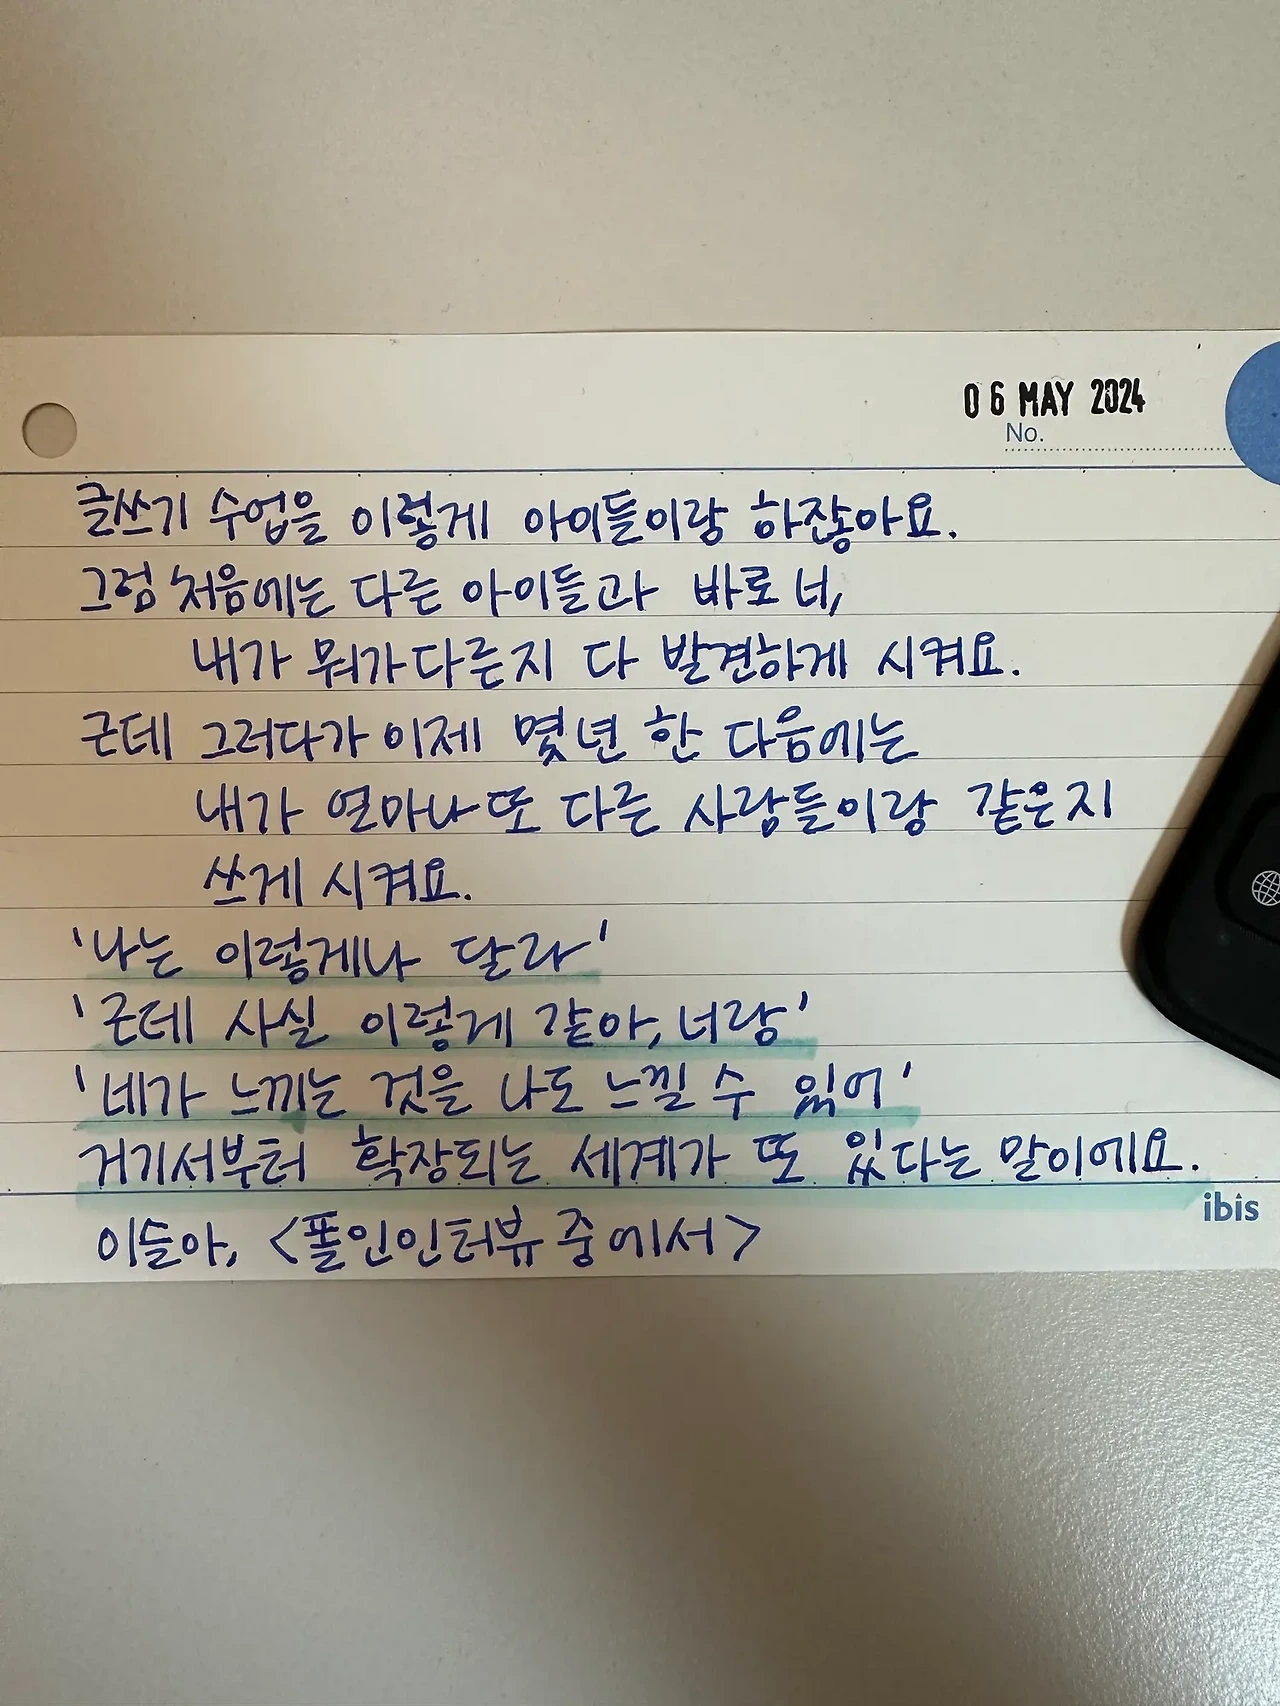 06 MAY 2024
No.
글쓰기 수업을 이렇게 아이들이랑 하잖아요.
그럼 처음에는 다른 아이들과 바로 너,
내가 뭐가 다른지 다 발견하게 시켜요.
근데 그러다가 이제 몇년 한 다음에는
내가 얼마나 또 다른 사람들이랑 같은지
쓰게 시켜요.
'나는 이렇게나 달라'
'근데 사실 이렇게 같아, 너랑'
'네가 느끼는 것을 나도 느낄 수 있어'
거기서부터 확장되는 세계가 또 있다는 말이에요.
ibis
이슬아, <폴인인터뷰 중에서>